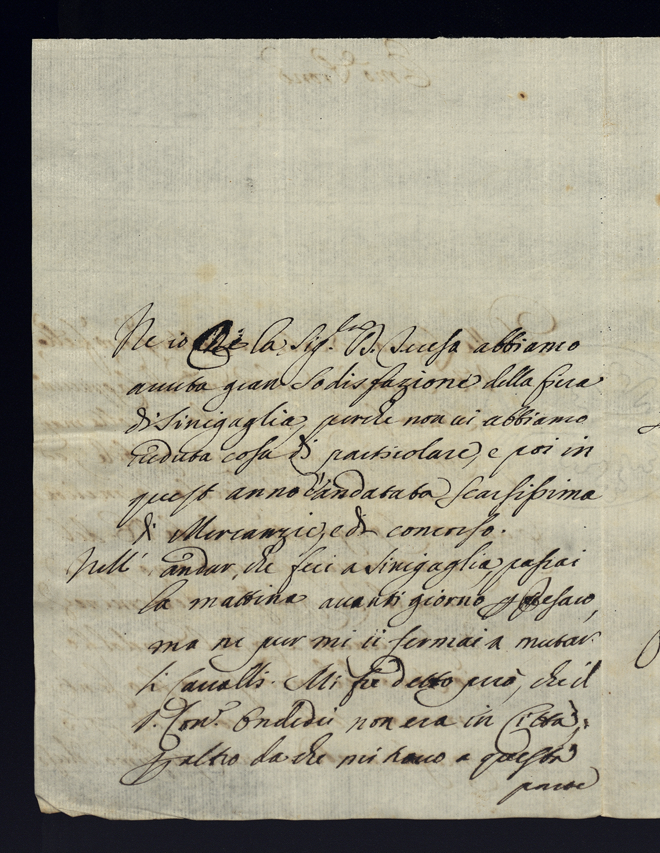 Ne io che la Sig.ra D. Teresa abbiamo
avuta gran sodisfazione della fiera
di Sinigaglia, perche non vi abbiamo
veduta cosa di particolare, e poi in
quest anno è andatata scarsissima
di Mercanzie, e di concorso.
Nell' andar, che feci a Sinigaglia, passai
la mattina avanti giorno p Pesaro,
ma ne pur mi ci fermai a mutar
li Cavalli. Mi fu detto però, che il
S. Con.e Ondedei non era in Città;
p altro da che mi trovo a questa
parte